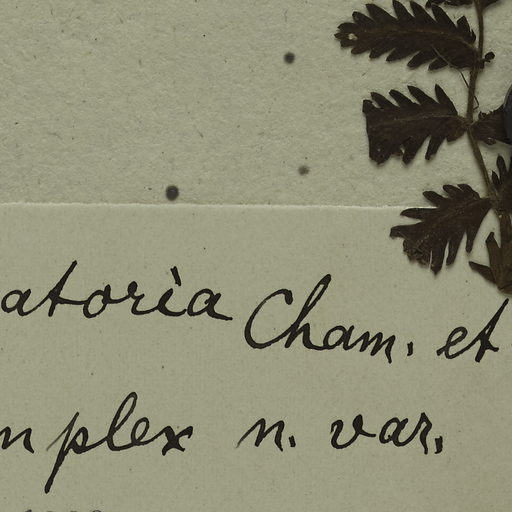 atoria Cham. et
mplex n. var.